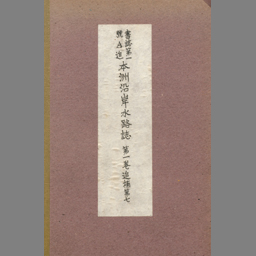 書誌第一
號A追
本洲沿岸水路誌 第一卷追補第七